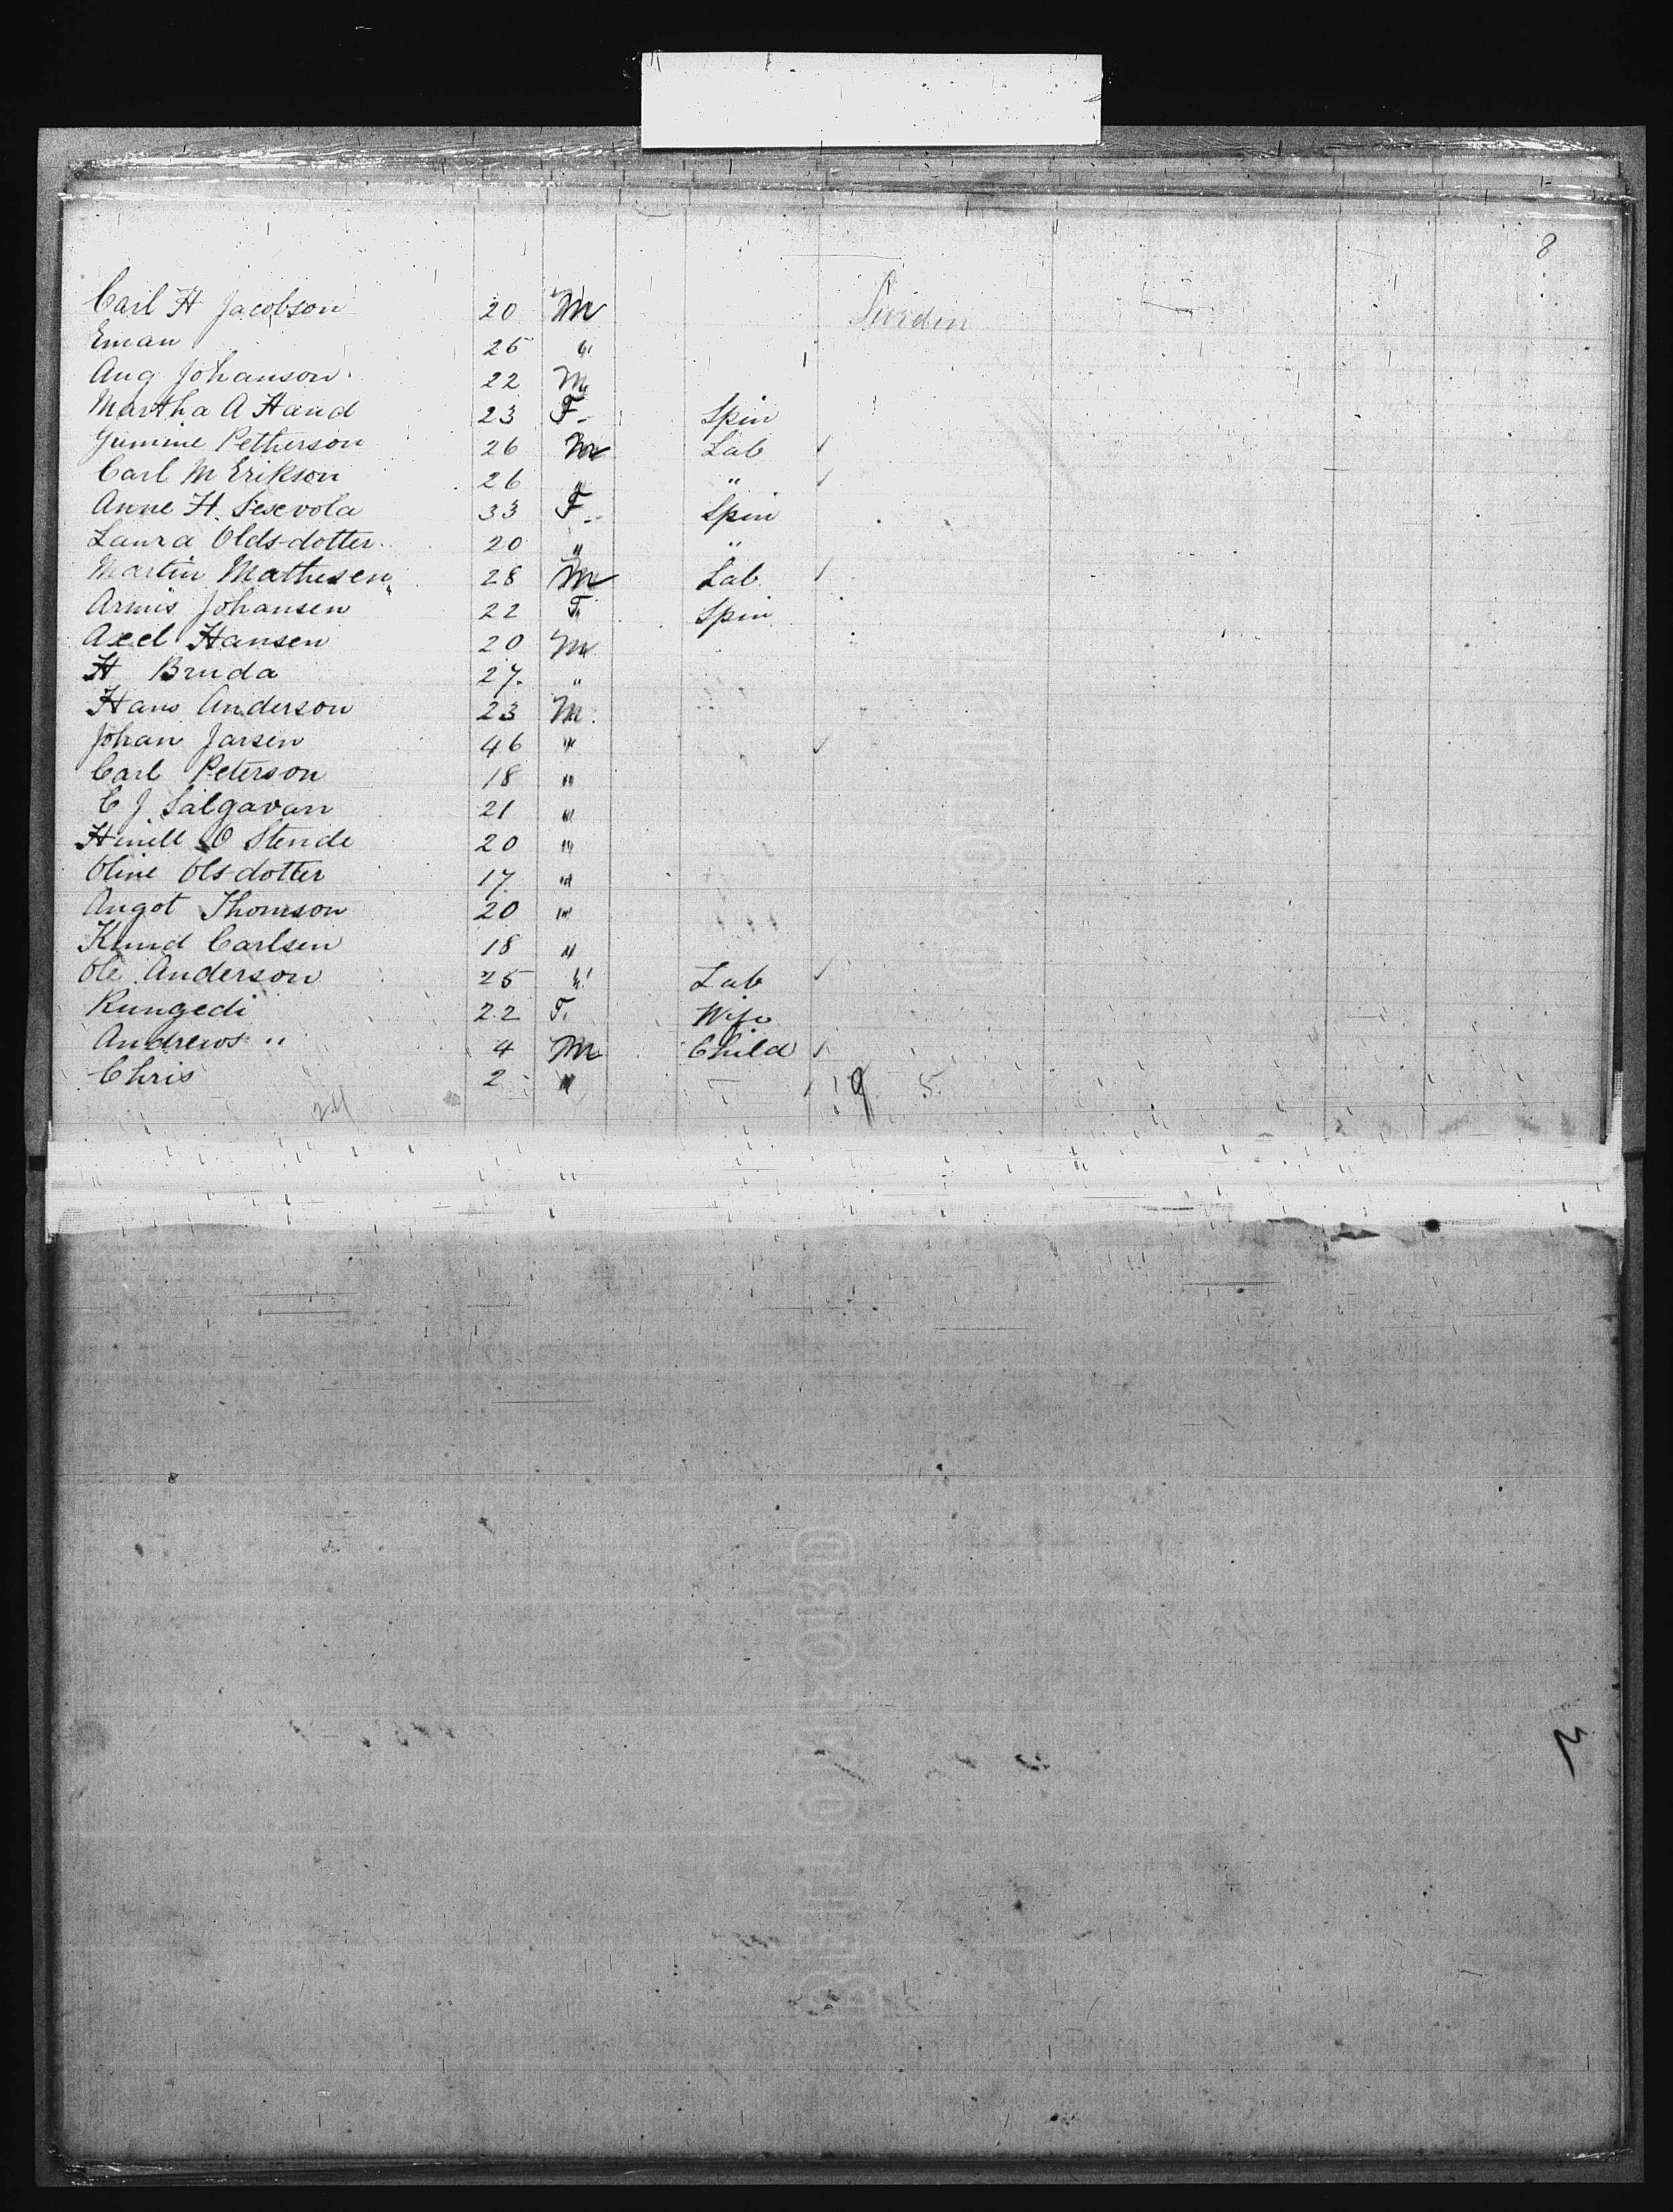 8
Carl H Jacobson 20 M Sweden
Eman 25 "
Aug Johanson 22 M
Martha A Hand 23 F Spin
Gumine Petherson 26 M Lab
Carl M Erikson 26 " "
Anne H. Sesevola 33 F Spin
Laura Olds-dotter 20 " "
Martin Mathesen 28 M Lab
Armis Johansen 22 F. Spin
Axel Hansen 20 M
H Bruda 27 "
Hans Anderson 23 M
Johan Jarsen 46 "
Carl Peterson 18 "
C J Salgavan 21 "
Hinell O Stende 20 "
Oline Ols-dotter 17 "
Angot Thomson 20 "
Knud Carlsen 18 "
Ole Anderson 25 " Lab
Rungedi 22 F. Wife
Andrews " 4 M Child
Chris 2 "
24 19 5
BEDFORD